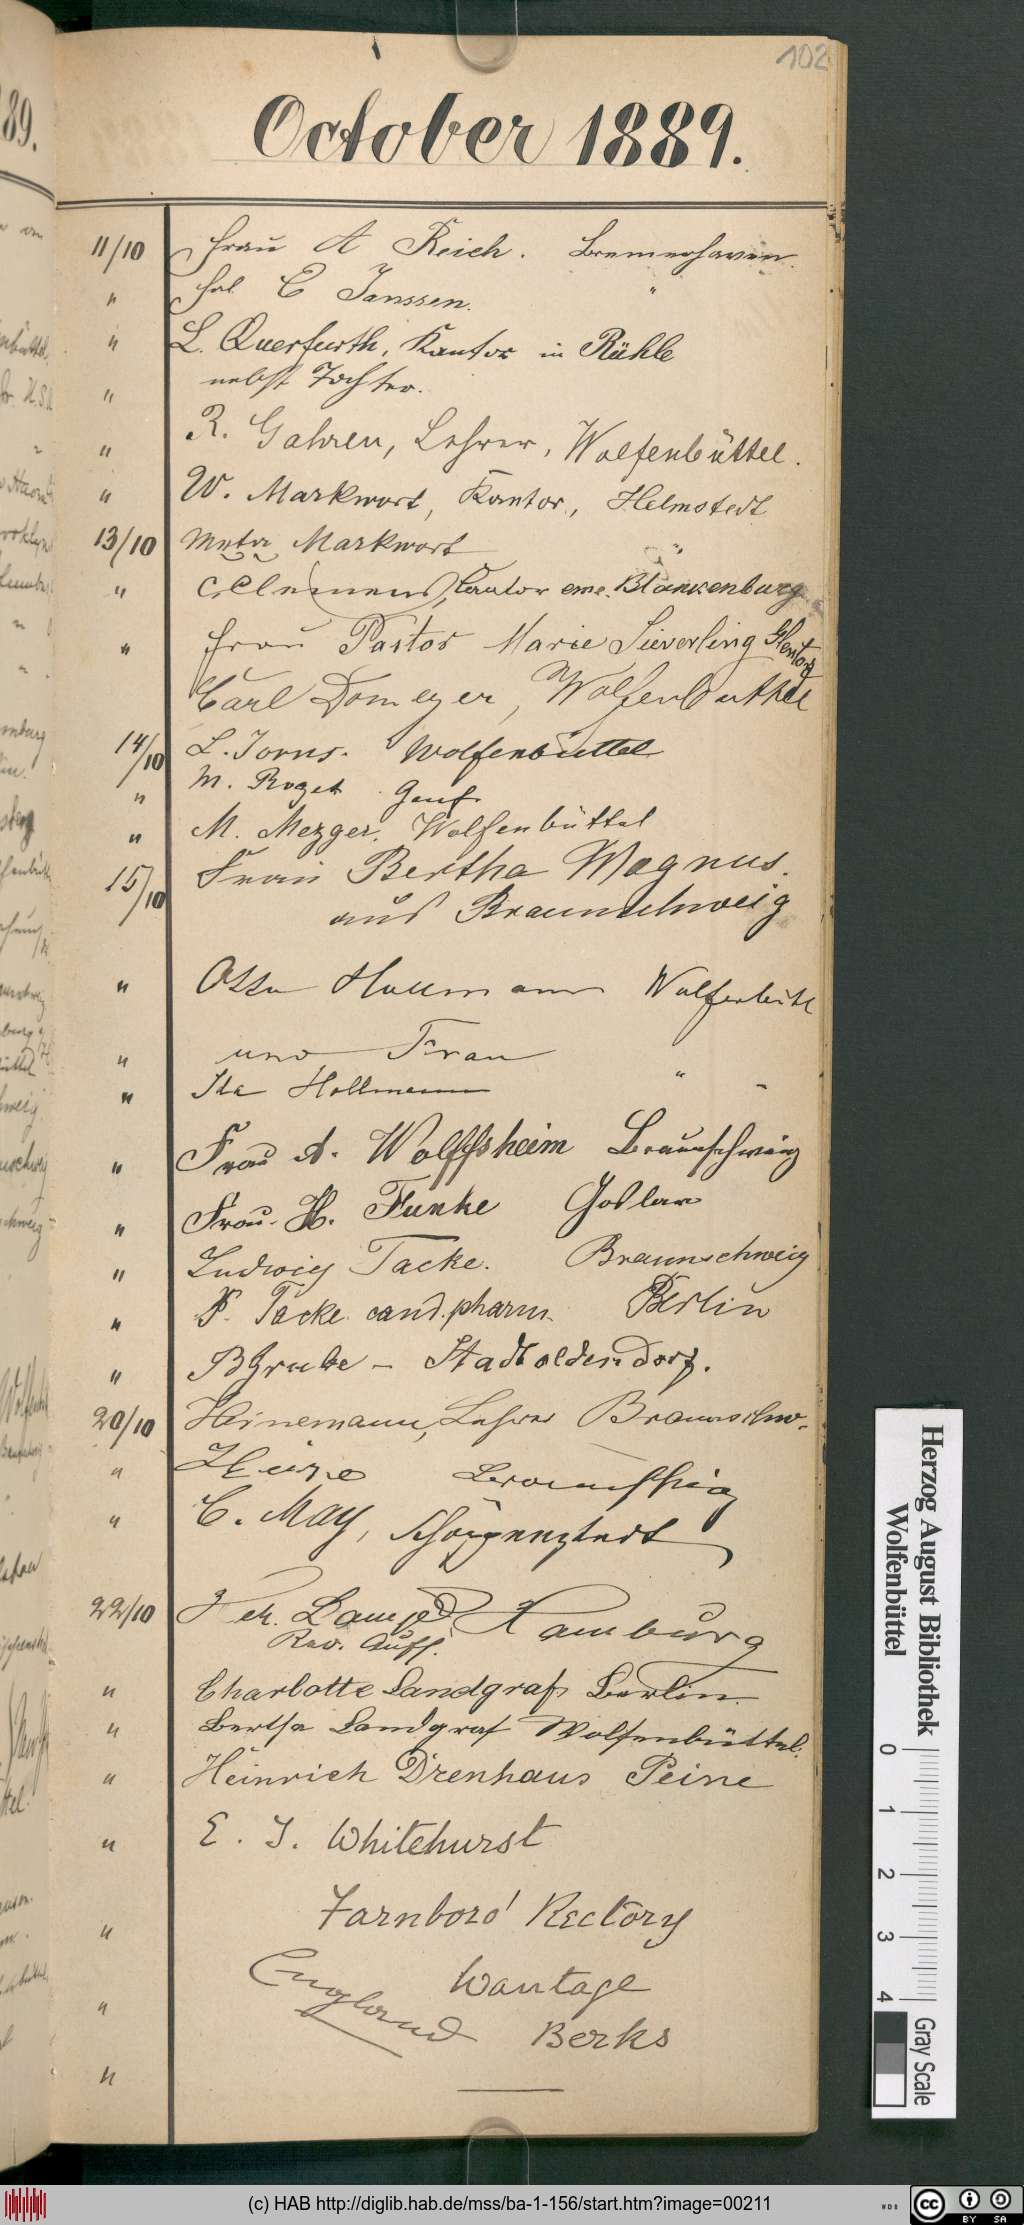 102
October 1889.
11/10 Frau A Reich. Bremerhaven.
" Frl. C Janssen. "
" L. Querfurth, Kantor in Rühle
" nebst Tochter.
" R. Gahren, Lehrer, Wolfenbüttel.
" W. Markwort, Kantor, Helmstedt
13/10 Markwort "
" C. Clemens, Kantor eme. Blankenburg
" Frau Pastor Marie Sieverling
Carl Domeyer, Wolfenbüttel
14/10 L. Jorns. Wolfenbüttel
" M. Roget Genf.
" M. Mezger. Wolfenbüttel
15/10 Frau Bertha Magnus.
aus Braunschweig
" Otto Hollmann Wolfenbüttel
" und Frau
" Ida Hollmann " "
" Frau A. Wolffsheim Braunschweig
" Frau. H. Funke Goslar
" Ludwig Tacke. Braunschweig
" P. Tacke cand. pharm. Berlin
" B Grube – Stadtoldendorf.
20/10 Heinemann, Lehrer Braunschw.
" Heine Braunschweig
" C. May, Schöppenstedt
22/10 Hamburg
Rev. Auff.
" Charlotte Landgraf Berlin.
" Bertha Landgraf Wolfenbüttel.
" Heinrich Drenhaus Peine
" E. J. Whitehurst
" Farnboro' Rectory
" Wantage
England
" Berks
Herzog August Bibliothek
Wolfenbüttel
0 1 2 3 4
Gray Scale
(c) HAB http://diglib.hab.de/mss/ba-1-156/start.htm?image=00211
WDB
cc
BY SA